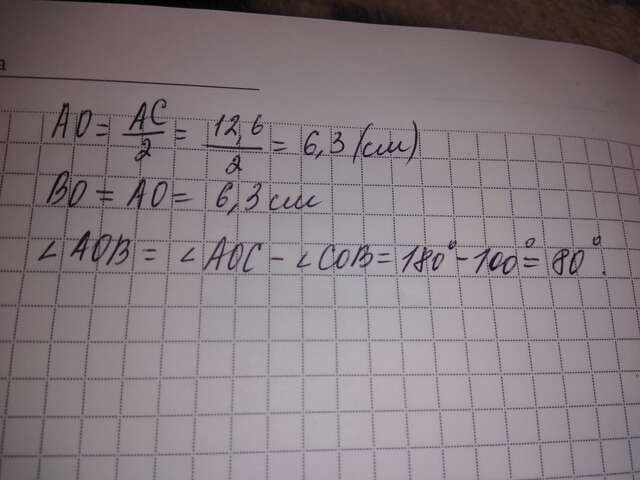 а
AO = AC/2 = 12,6/2 = 6,3 (см)
BO = AO = 6,3 см
∠AOB = ∠AOC - ∠COB = 180° - 100° = 80°.